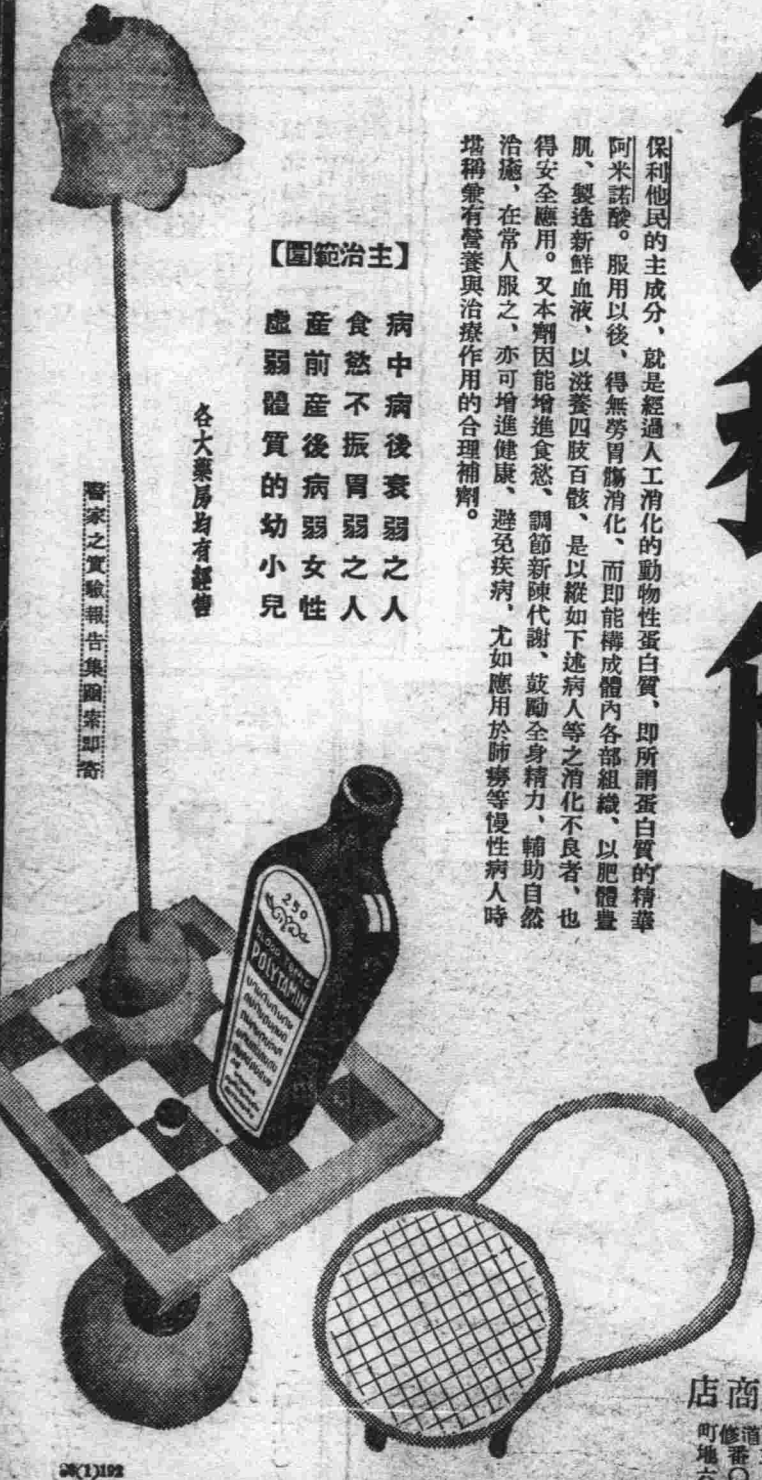 保利他民的主成分、就是經過人工消化的動物性蛋白質、即所謂蛋白質的精華
阿米諾酸。服用以後、得無勞胃腸消化、而即能構成體內各部組織、以肥體豊
肌、製造新鮮血液、以滋養四肢百骸、是以縱如下述病人等之消化不良者、也
得安全應用。又本劑因能增進食慾、調節新陳代謝、鼓勵全身精力、輔助自然
治癒、在常人服之、亦可增進健康、避免疾病、尤如應用於肺癆等慢性病人時
堪稱兼有營養與治療作用的合理補劑。
【主治範圍】
病中病後衰弱之人
食慾不振胃弱之人
產前產後病弱女性
虛弱體質的幼小兒
各大藥房均有經售
醫家之實驗報告集函索即寄
250
BLOOD TONIC
POLYTAMIN
商店